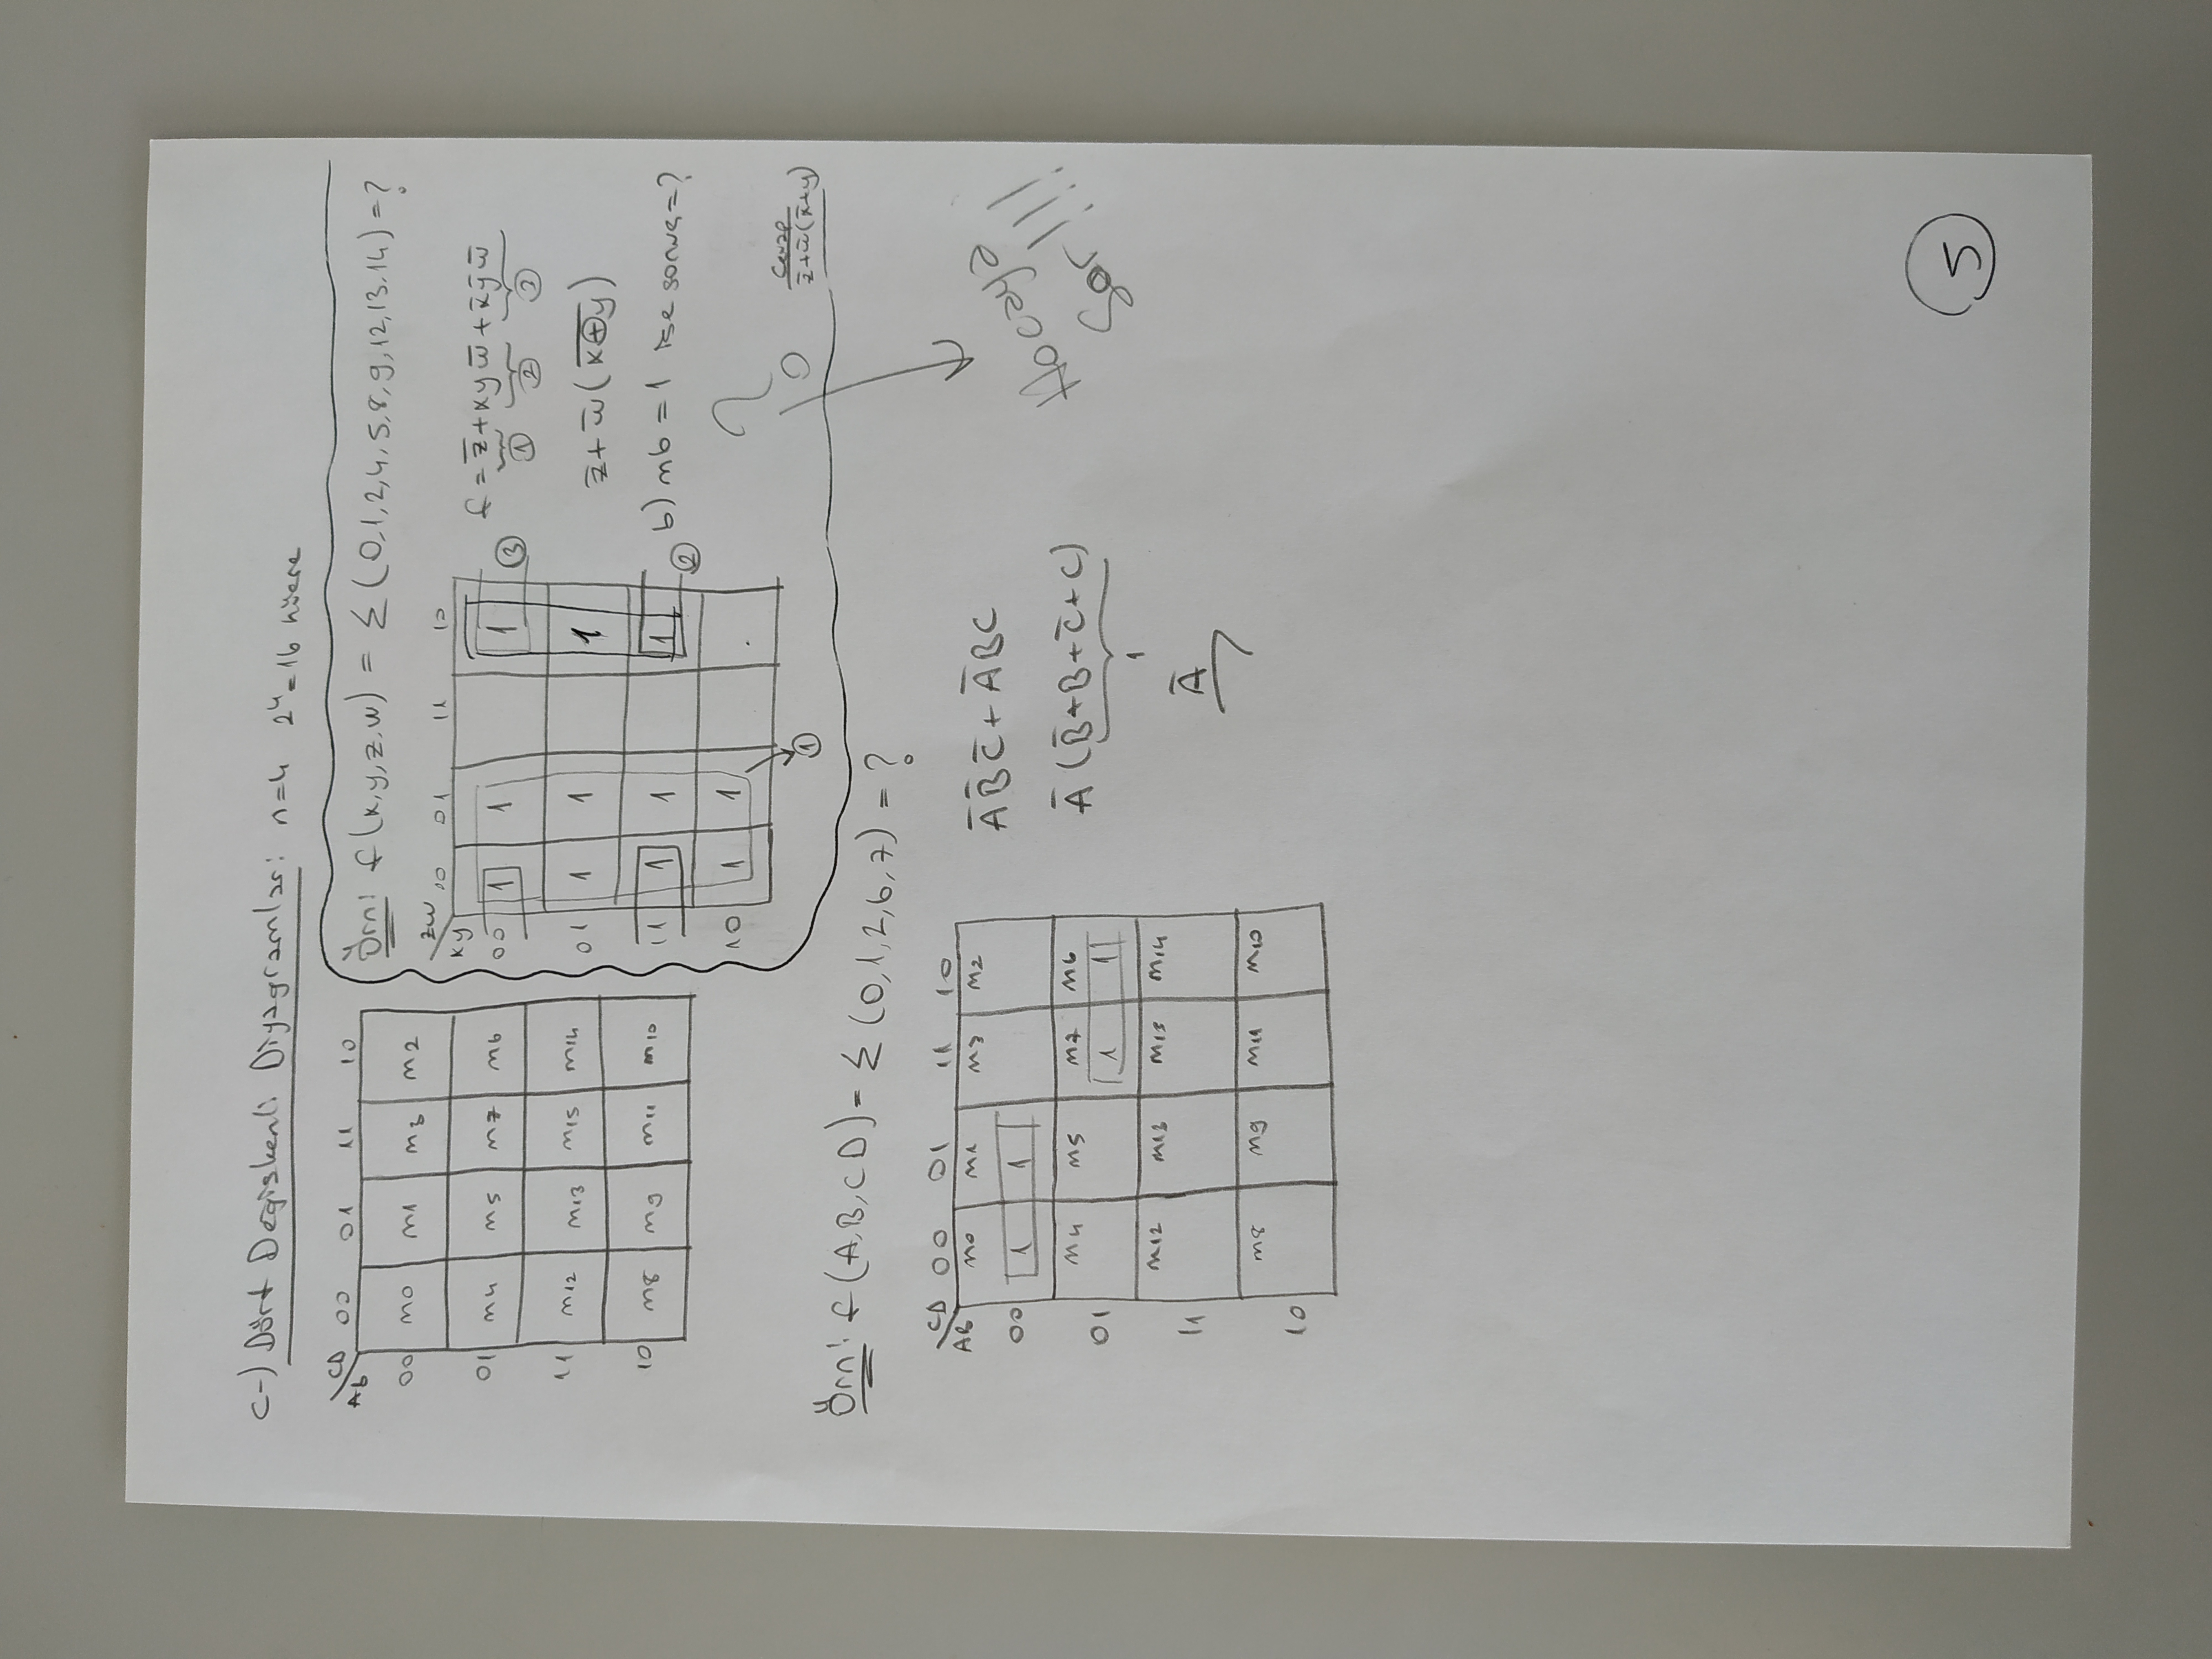 C-) Dört Değişkenli Diyagramlar: n=4 2⁴=16 hücre
CD
AB
00 01 11 10
00 m0 m1 m3 m2
01 m4 m5 m7 m6
11 m12 m13 m15 m14
10 m8 m9 m11 m10
Örn: f(x,y,z,w) = Σ(0,1,2,4,5,8,9,12,13,14)=?
zw
xy
00 01 11 10
00 1 1 1 ③
01 1 1 1
11 1 1 1 ②
10 1 1 .
①
f = z̄+xyw̄+x̄ȳw̄
① ② ③
z̄+w̄(x̅⊕̅y̅)
b) m6 = 1 ise sonuç=?
?
Cevap
z̄+w̄(x̄+y)
Hocaya
Sor!!!
Örn: f(A,B,CD)= Σ(0,1,2,6,7) = ?
CD
AB
00 01 11 10
m0 m1 m3 m2
00 1 1
m4 m5 m7 m6
01 1 1
m12 m13 m15 m14
11
m8 m9 m11 m10
10
ĀB̄C̄+ĀBC
Ā(B̄+B+C̄+C)
1
Ā
5